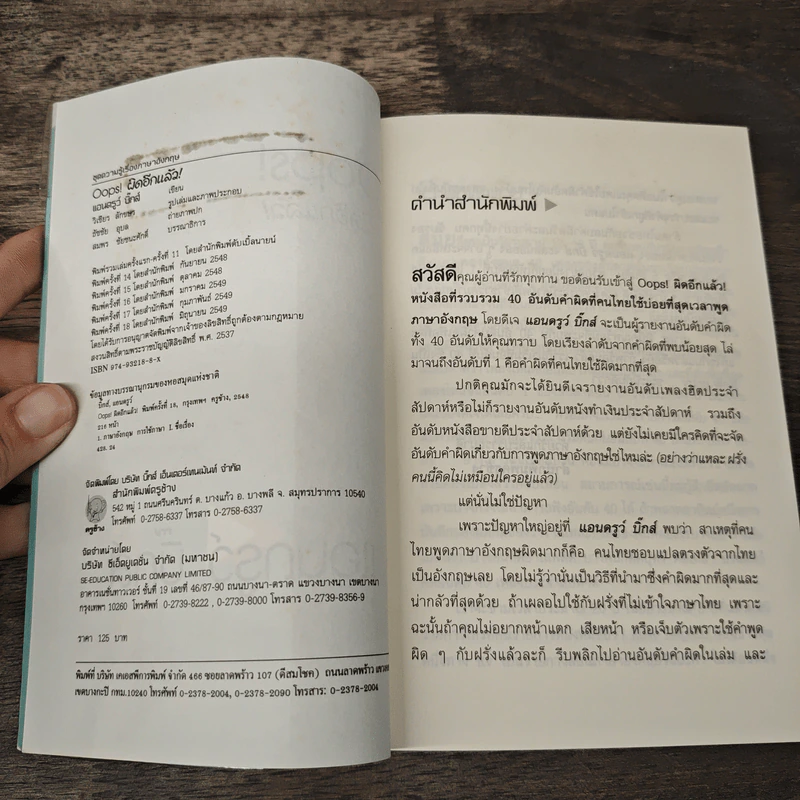 ชุดความรู้เรื่องภาษาอังกฤษ
Oops! ผิดอีกแล้ว!
แอนดรูว์ บิ๊กส์ เขียน
วิเชียร ดักขนา รูปเล่มและภาพประกอบ
ธัชชัย อุบล ถ่ายภาพปก
สมพร ชัยชนะศักดิ์ บรรณาธิการ
พิมพ์รวมเล่มครั้งแรก-ครั้งที่ 11 โดยสำนักพิมพ์ดับเบิ้ลนายน์
พิมพ์ครั้งที่ 14 โดยสำนักพิมพ์ กันยายน 2548
พิมพ์ครั้งที่ 15 โดยสำนักพิมพ์ ตุลาคม 2548
พิมพ์ครั้งที่ 16 โดยสำนักพิมพ์ มกราคม 2549
พิมพ์ครั้งที่ 17 โดยสำนักพิมพ์ กุมภาพันธ์ 2549
พิมพ์ครั้งที่ 18 โดยสำนักพิมพ์ มิถุนายน 2549
โดยได้รับการอนุญาตจัดพิมพ์จากเจ้าของลิขสิทธิ์ถูกต้องตามกฎหมาย
สงวนลิขสิทธิ์ตามพระราชบัญญัติลิขสิทธิ์ พ.ศ. 2537
ISBN 974-93218-8-x
ข้อมูลทางบรรณานุกรมของหอสมุดแห่งชาติ
บิ๊กส์, แอนดรูว์
Oops! ผิดอีกแล้ว! พิมพ์ครั้งที่ 18, กรุงเทพฯ ครูช้าง, 2548
216 หน้า
1. ภาษาอังกฤษ การใช้ภาษา I. ชื่อเรื่อง
428.24
จัดพิมพ์โดย บริษัท บิ๊กส์ เอ็นเตอร์เทนเม้นท์ จำกัด
สำนักพิมพ์ครูช้าง
542 หมู่ 1 ถนนศรีนครินทร์ ต. บางแก้ว อ. บางพลี จ. สมุทรปราการ 10540
โทรศัพท์ 0-2758-6337 โทรสาร 0-2758-6337
ครูช้าง
จัดจำหน่ายโดย
บริษัท ซีเอ็ดยูเคชั่น จำกัด (มหาชน)
SE-EDUCATION PUBLIC COMPANY LIMITED
อาคารเนชั่นทาวเวอร์ ชั้นที่ 19 เลขที่ 46/87-90 ถนนบางนา-ตราด แขวงบางนา เขตบางนา
กรุงเทพฯ 10260 โทรศัพท์ 0-2739-8222 , 0-2739-8000 โทรสาร 0-2739-8356-9
ราคา 125 บาท
พิมพ์ที่ บริษัท เคเอสพีการพิมพ์ จำกัด 466 ซอยลาดพร้าว 107 (ดีสมโชค) ถนนลาดพร้าว
เขตบางกะปิ กทม.10240 โทรศัพท์ 0-2378-2004, 0-2378-2090 โทรสาร: 0-2378-2004
คำนำสำนักพิมพ์
สวัสดีคุณผู้อ่านที่รักทุกท่าน ขอต้อนรับเข้าสู่ Oops! ผิดอีกแล้ว!
หนังสือที่รวบรวม 40 อันดับคำผิดที่คนไทยใช้บ่อยที่สุดเวลาพูด
ภาษาอังกฤษ โดยดีเจ แอนดรูว์ บิ๊กส์ จะเป็นผู้รายงานอันดับคำผิด
ทั้ง 40 อันดับให้คุณทราบ โดยเรียงลำดับจากคำผิดที่พบน้อยสุด ไล่
มาจนถึงอันดับที่ 1 คือคำผิดที่คนไทยใช้ผิดมากที่สุด
ปกติคุณมักจะได้ยินดีเจรายงานอันดับเพลงฮิตประจำ
สัปดาห์หรือไม่ก็รายงานอันดับหนังทำเงินประจำสัปดาห์ รวมถึง
อันดับหนังสือขายดีประจำสัปดาห์ด้วย แต่ยังไม่เคยมีใครคิดที่จะจัด
อันดับคำผิดเกี่ยวกับการพูดภาษาอังกฤษใช่ไหมล่ะ (อย่างว่าแหละ ฝรั่ง
คนนี้คิดไม่เหมือนใครอยู่แล้ว)
แต่นั่นไม่ใช่ปัญหา
เพราะปัญหาใหญ่อยู่ที่ แอนดรูว์ บิ๊กส์ พบว่า สาเหตุที่คน
ไทยพูดภาษาอังกฤษผิดมากก็คือ คนไทยชอบแปลตรงตัวจากไทย
เป็นอังกฤษเลย โดยไม่รู้ว่านั่นเป็นวิธีที่นำมาซึ่งคำผิดมากที่สุดและ
น่ากลัวที่สุดด้วย ถ้าเผลอไปใช้กับฝรั่งที่ไม่เข้าใจภาษาไทย เพราะ
ฉะนั้นถ้าคุณไม่อยากหน้าแตก เสียหน้า หรือเจ็บตัวเพราะใช้คำพูด
ผิด ๆ กับฝรั่งแล้วละก็ รีบพลิกไปอ่านอันดับคำผิดในเล่ม และ